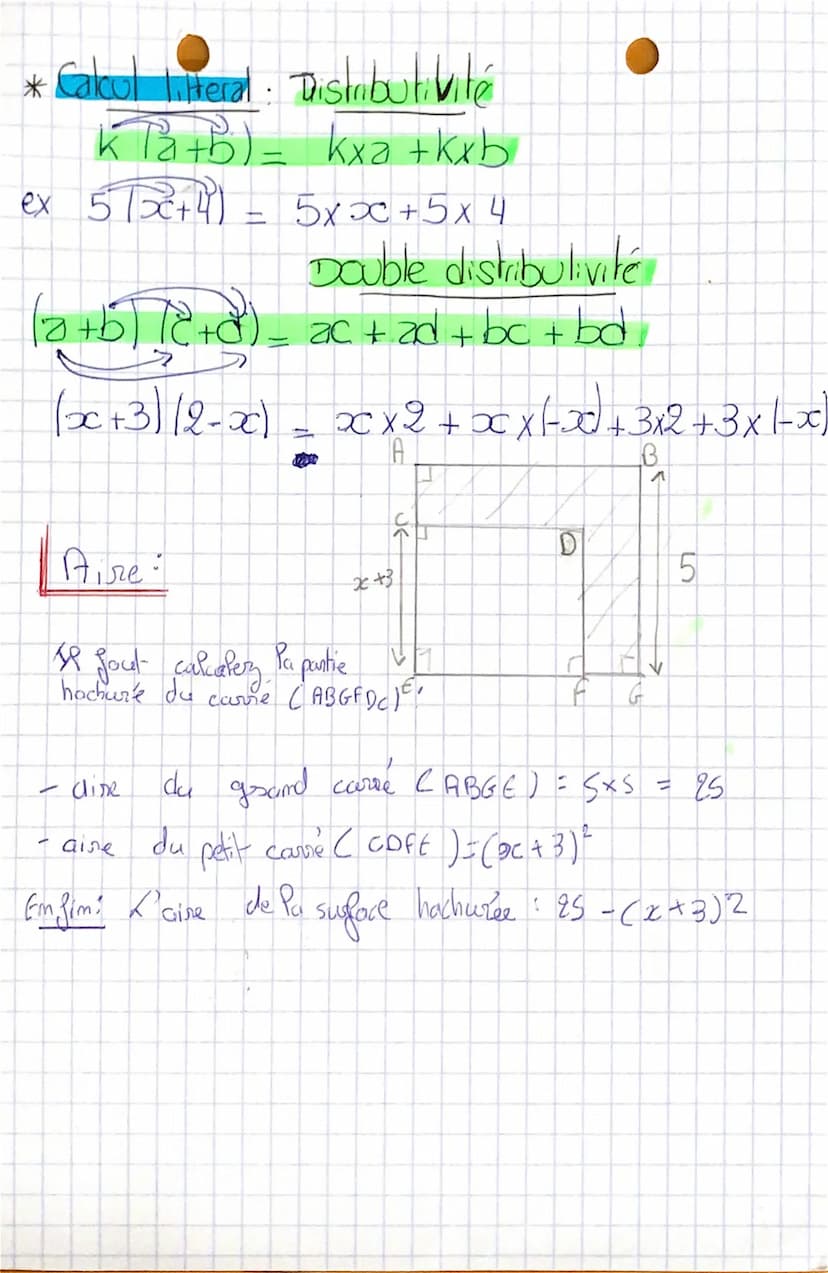 * Calcul litteral : Distributivité
k (a+b) = kxa + kxb
ex 5 (x+4) = 5 x x + 5 x 4
Double distributivité
(a+b) (c+d) = ac + ad + bc + bd.
(x+3) (2-x) = x x 2 + x x (-x) + 3x2 + 3 x (-x)
A B
C D
x+3 5
Aire :
E F G
Il faut calculer la partie
hachuré du carré (ABGFDC)
- aire du grand carré (ABGE) = 5x5 = 25
- aire du petit carré (CDFE) = (x+3)²
Enfin : L'aire de la surface hachurée : 25 - (x+3)2